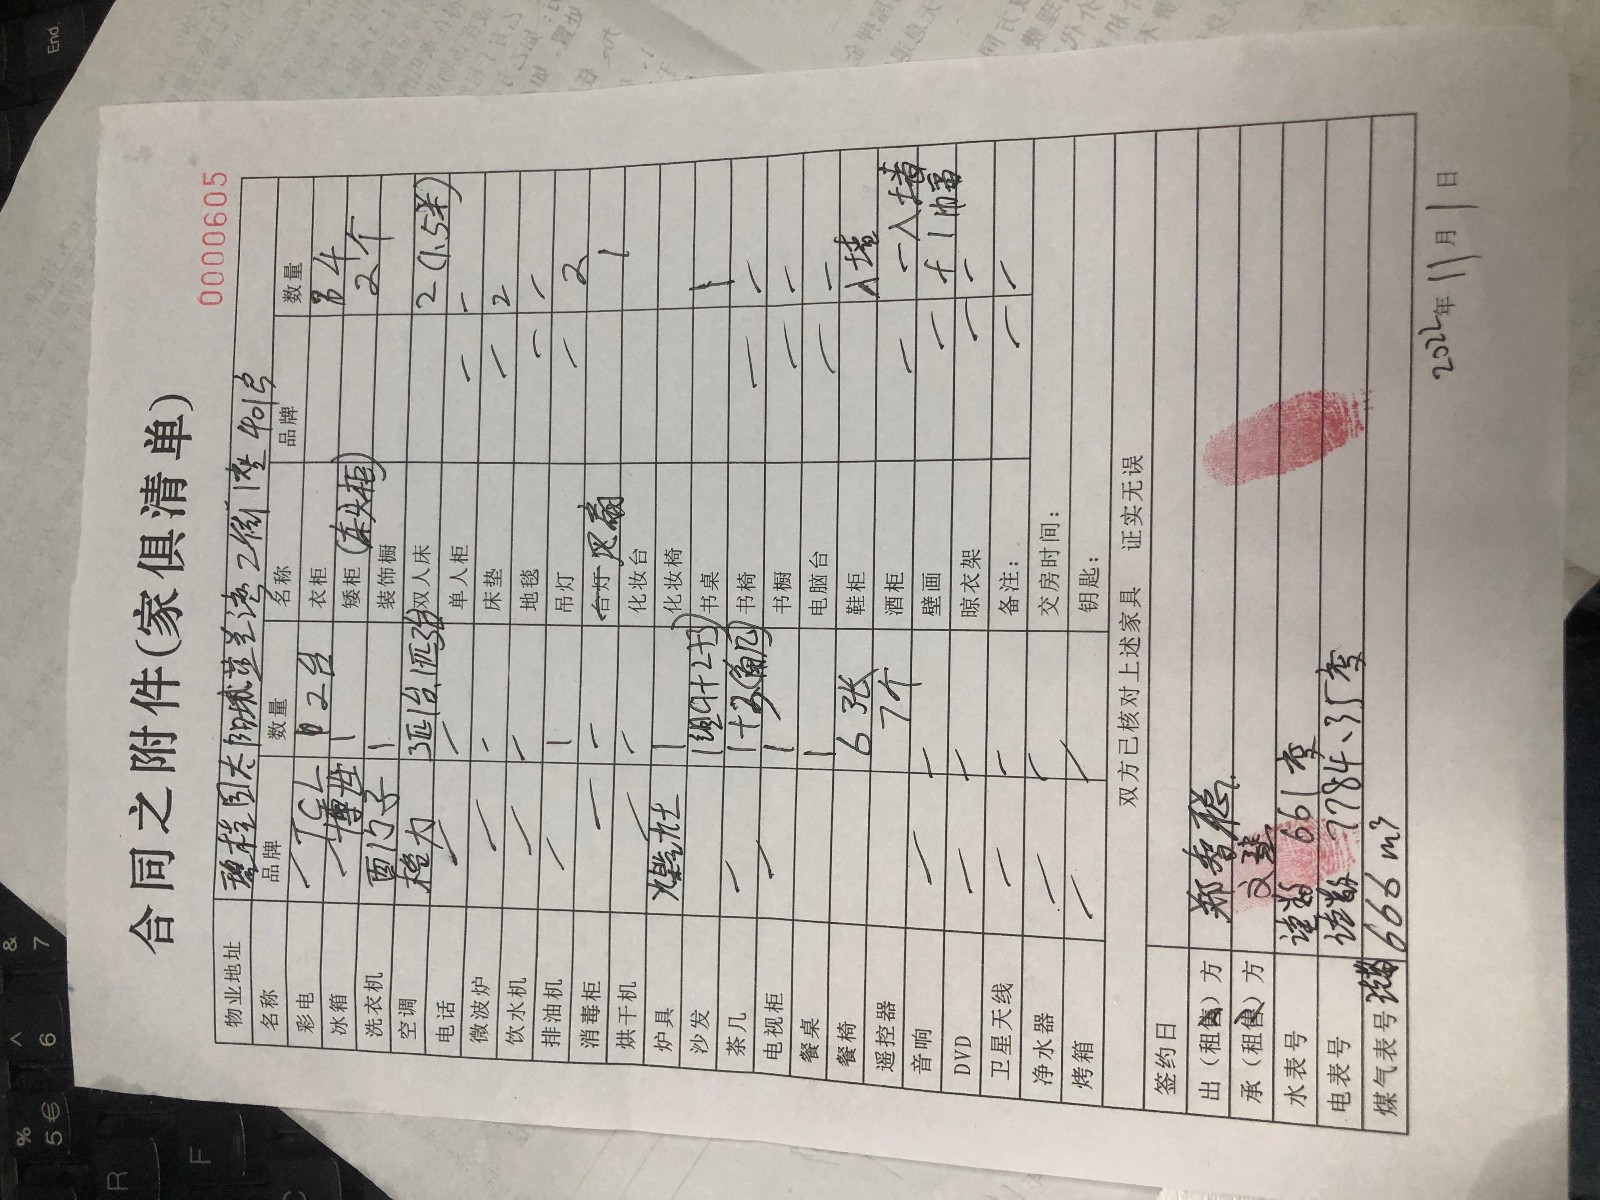 合同之附件(家俱清单)
0000605
物业地址 碧桂园太阳城芷兰湾2街1座401号
名称 品牌 数量 名称 品牌 数量
彩电 TCL 2台 衣柜 4
冰箱 博世 1 矮柜(床头柜) 2个
洗衣机 西门子 1 装饰橱
空调 格力 3匹1台,1匹3台 双人床 2(1.5米)
电话 单人柜
微波炉 床垫 2
饮水机 地毯
排油机 1 吊灯 2
消毒柜 台灯 风扇 1
烘干机 化妆台
炉具 燃气灶 1 化妆椅
沙发 1组(1+2+3) 书桌 1
茶几 1+2(角几) 书椅
电视柜 1 书橱
餐桌 1 电脑台
餐椅 6张 鞋柜 入墙
遥控器 7个 酒柜 一入墙
音响 壁画 十1幅
DVD 晾衣架
卫星天线 备注:
净水器 交房时间:
烤箱 钥匙:
双方已核对上述家具 证实无误
签约日
出(租售)方 郑智稳
承(租售)方
水表号 读数 661度
电表号 读数 7784.35度
煤气表号 读数 666m³
2022年11月1日
End
& 7
^ 6
% 5 €
R
F